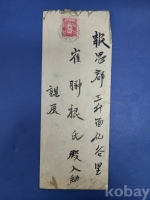 報恩郡 三升面 仙谷里
崔聃根氏殿入納
親展
kobay